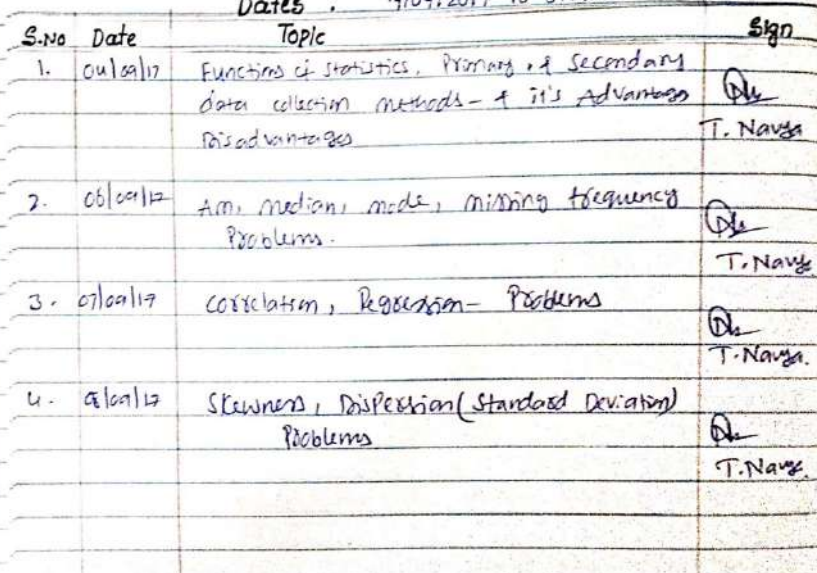 Dates :
S.No Date Topic Sign
1. 04/09/17 Functions of Statistics, Primary & Secondary
data collection methods - & it's Advantages
Disadvantages
T. Navya
2. 06/09/17 Am, median, mode, missing frequency
Problems.
T. Navya
3. 07/09/17 Correlation, Regression - Problems
T. Navya.
4. 8/09/17 Skewness, Dispersion (Standard Deviation)
Problems
T. Navya.